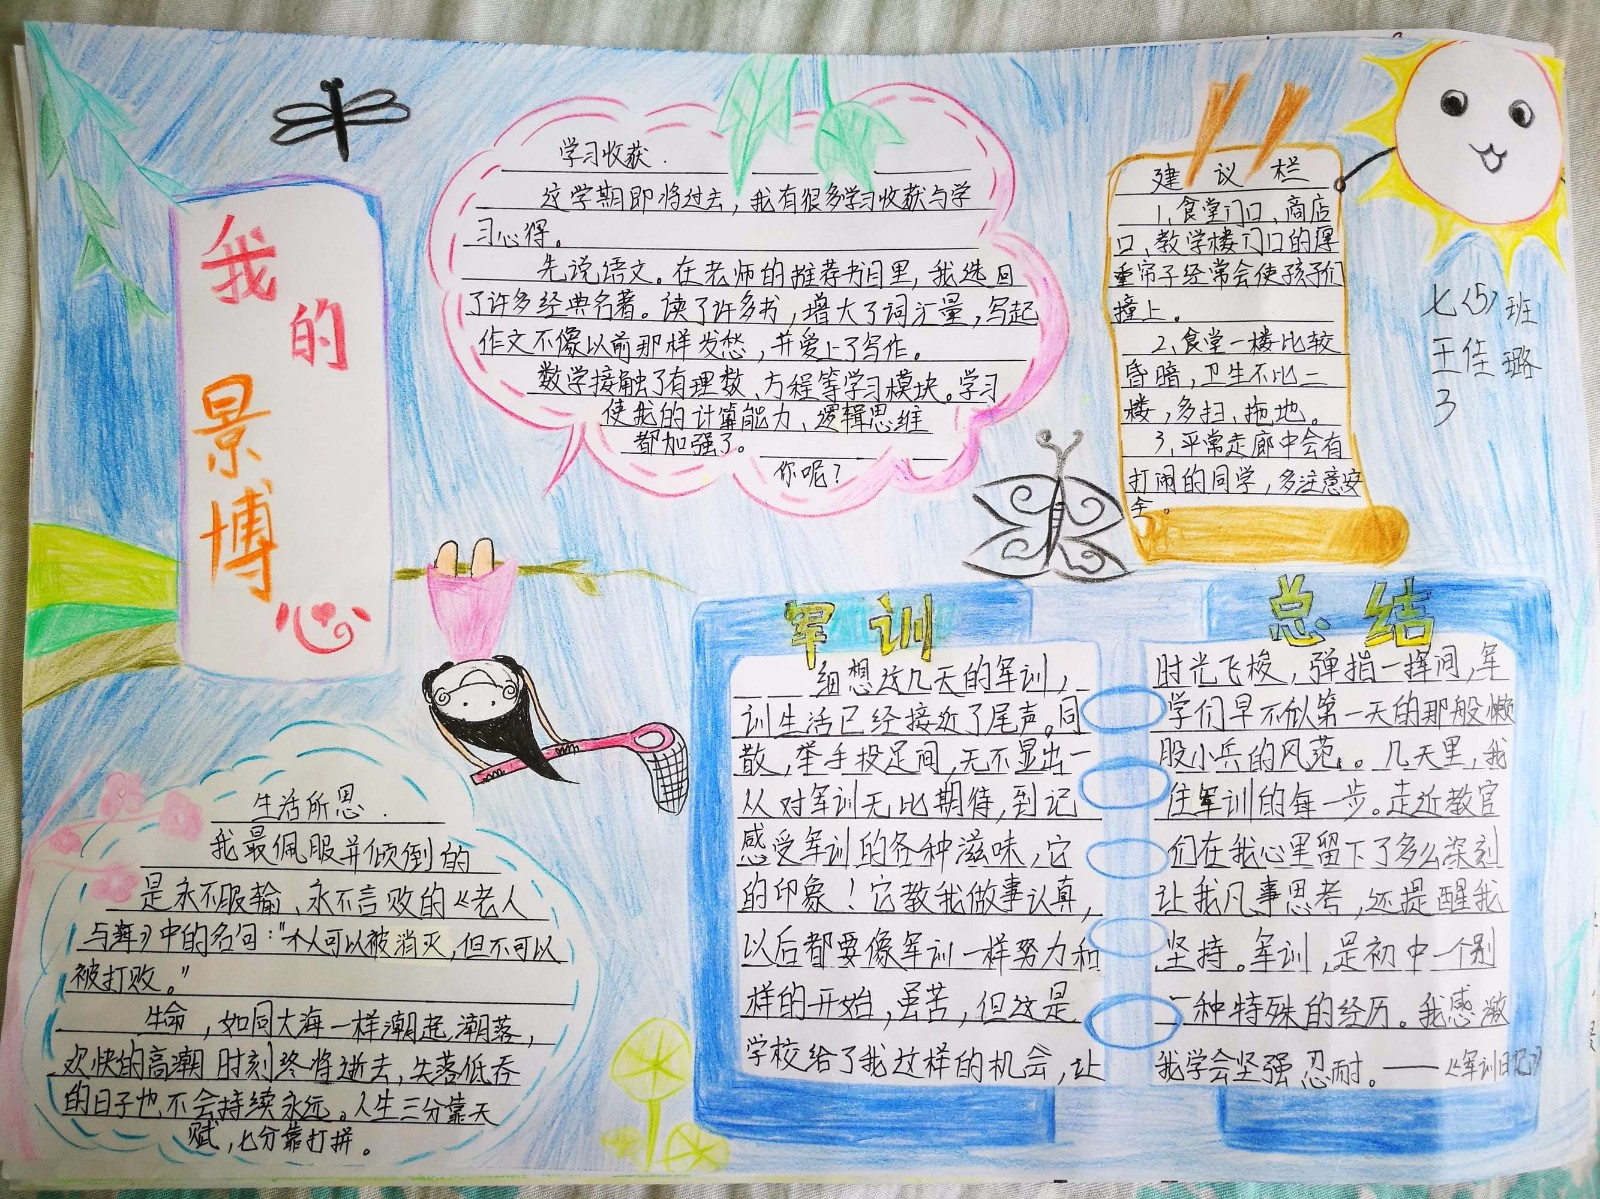 我
的
景
博
心
学习收获.
这学期即将过去，我有很多学习收获与学
习心得。
先说语文。在老师的推荐书目里，我选回
了许多经典名著。读了许多书，增大了词汇量，写起
作文不像以前那样发愁，并爱上了写作。
数学接触了有理数、方程等学习模块。学习
使我的计算能力、逻辑思维
都加强了。
你呢？
建议栏
1、食堂门口、商店
口、教学楼门口的厚
重帘子经常会使孩子们
撞上。
2、食堂一楼比较
昏暗，卫生不比二
楼，多扫、拖地。
3、平常走廊中会有
打闹的同学，多注意安
全。
七〈5〉班
王佳璐
3
生活所思.
我最佩服并倾倒的
是永不服输、永不言败的《老人
与海》中的名句："人可以被消灭，但不可以
被打败。"
生命，如同大海一样潮起潮落，
欢快的高潮时刻终将逝去，失落低吞
的日子也不会持续永远。人生三分靠天
赋，七分靠打拼。
军训 总结
细想这几天的军训，时光飞梭，弹指一挥间，军
训生活已经接近了尾声。同学们早不似第一天的那般懒
散，举手投足间，无不显出一股小兵的风范。几天里，我
从对军训无比期待，到记住军训的每一步。走近教官
感受军训的各种滋味，它们在我心里留下了多么深刻
的印象！它教我做事认真，让我凡事思考，还提醒我
以后都要像军训一样努力和坚持。军训，是初中一个别
样的开始，虽苦，但这是一种特殊的经历。我感激
学校给了我这样的机会，让我学会坚强忍耐。——《军训日记》